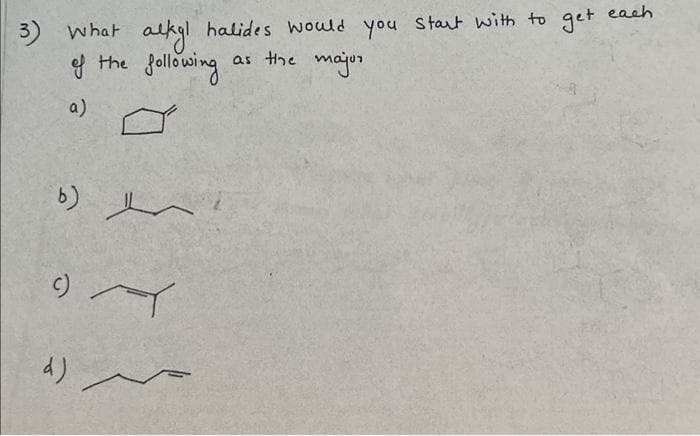 3) What alkyl halides would you start with to get each
of the following as the major
a)
b)
c)
d)